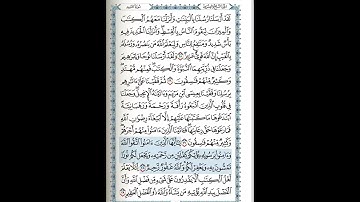 لَقَدْ أَرْسَلْنَا رُسُلَنَا بِالْبَيِّنَاتِ وَأَنزَلْنَا مَعَهُمُ الْكِتَابَ
وَالْمِيزَانَ لِيَقُومَ النَّاسُ بِالْقِسْطِ وَأَنزَلْنَا الْحَدِيدَ فِيهِ
بَأْسٌ شَدِيدٌ وَمَنَافِعُ لِلنَّاسِ وَلِيَعْلَمَ اللَّهُ مَن يَنصُرُهُ وَرُسُلَهُ
بِالْغَيْبِ إِنَّ اللَّهَ قَوِيٌّ عَزِيزٌ ٢٥ وَلَقَدْ أَرْسَلْنَا نُوحًا وَإِبْرَاهِيمَ
وَجَعَلْنَا فِي ذُرِّيَّتِهِمَا النُّبُوَّةَ وَالْكِتَابَ فَمِنْهُم مُّهْتَدٍ
وَكَثِيرٌ مِّنْهُمْ فَاسِقُونَ ٢٦ ثُمَّ قَفَّيْنَا عَلَىٰ آثَارِهِم بِرُسُلِنَا
وَقَفَّيْنَا بِعِيسَى ابْنِ مَرْيَمَ وَآتَيْنَاهُ الْإِنجِيلَ وَجَعَلْنَا
فِي قُلُوبِ الَّذِينَ اتَّبَعُوهُ رَأْفَةً وَرَحْمَةً وَرَهْبَانِيَّةً
ابْتَدَعُوهَا مَا كَتَبْنَاهَا عَلَيْهِمْ إِلَّا ابْتِغَاءَ رِضْوَانِ اللَّهِ
فَمَا رَعَوْهَا حَقَّ رِعَايَتِهَا فَآتَيْنَا الَّذِينَ آمَنُوا مِنْهُمْ أَجْرَهُمْ
وَكَثِيرٌ مِّنْهُمْ فَاسِقُونَ ٢٧ يَا أَيُّهَا الَّذِينَ آمَنُوا اتَّقُوا اللَّهَ
وَآمِنُوا بِرَسُولِهِ يُؤْتِكُمْ كِفْلَيْنِ مِن رَّحْمَتِهِ وَيَجْعَل لَّكُمْ نُورًا
تَمْشُونَ بِهِ وَيَغْفِرْ لَكُمْ وَاللَّهُ غَفُورٌ رَّحِيمٌ ٢٨ لِّئَلَّا يَعْلَمَ
أَهْلُ الْكِتَابِ أَلَّا يَقْدِرُونَ عَلَىٰ شَيْءٍ مِّن فَضْلِ اللَّهِ وَأَنَّ
الْفَضْلَ بِيَدِ اللَّهِ يُؤْتِيهِ مَن يَشَاءُ وَاللَّهُ ذُو الْفَضْلِ الْعَظِيمِ ٢٩